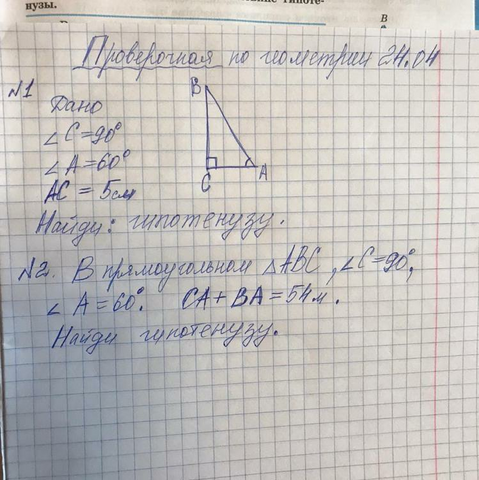 нузы.
В
Проверочная по геометрии 24.04
№1
Дано
∠C=90°
∠A=60°
AC = 5см
B
C
A
Найди: гипотенузу.
№2. В прямоугольном △ABC, ∠C=90°,
∠A=60°. CA+BA=54м.
Найди гипотенузу.